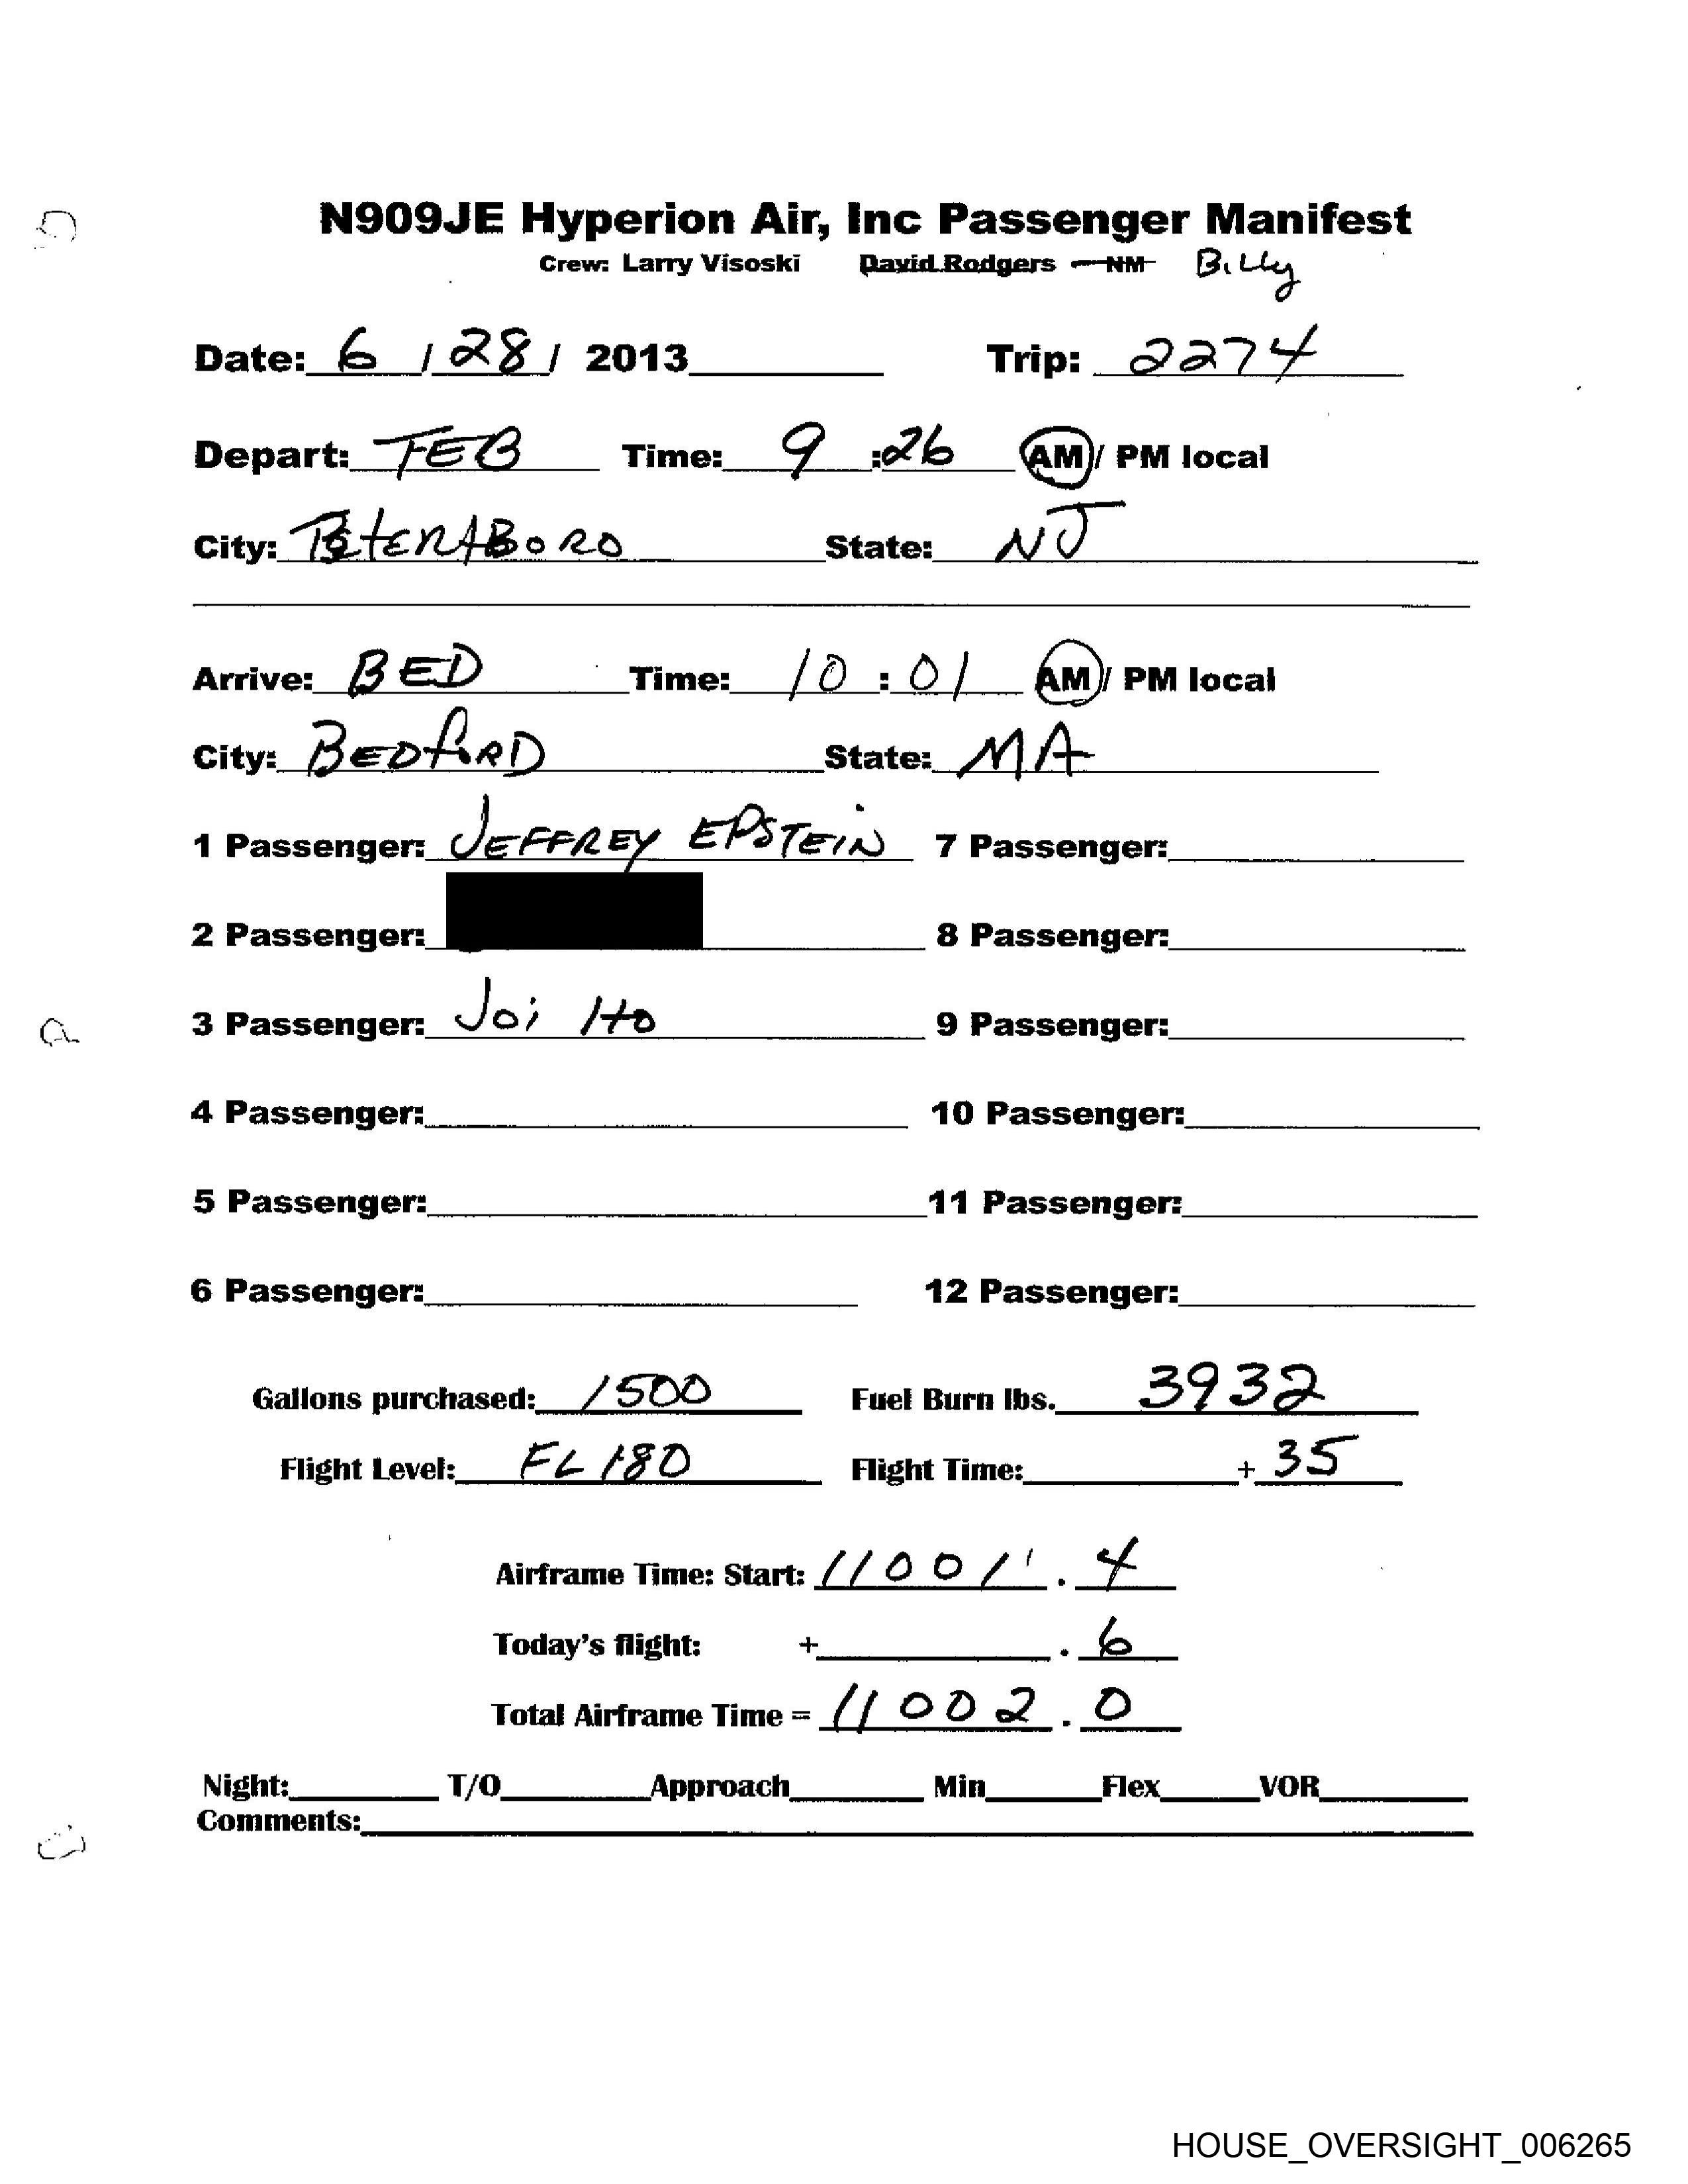 N909JE Hyperion Air, Inc Passenger Manifest
Crew: Larry Visoski David Rodgers – NM Billy
Date: 6 / 28 / 2013 Trip: 2274
Depart: TEB Time: 9 :26 AM / PM local
City: TEterBoro State: NJ
Arrive: BED Time: 10 : 01 AM / PM local
City: BEDfoRD State: MA
1 Passenger: JEFFREY EPSTEiN 7 Passenger:
2 Passenger: 8 Passenger:
3 Passenger: Joi Ito 9 Passenger:
4 Passenger: 10 Passenger:
5 Passenger: 11 Passenger:
6 Passenger: 12 Passenger:
Gallons purchased: 1500 Fuel Burn lbs. 3932
Flight Level: FL 180 Flight Time: + 35
Airframe Time: Start: 11001 . 4
Today's flight: + . 6
Total Airframe Time = 11002 . 0
Night: T/O Approach Min Flex VOR
Comments:
HOUSE_OVERSIGHT_006265